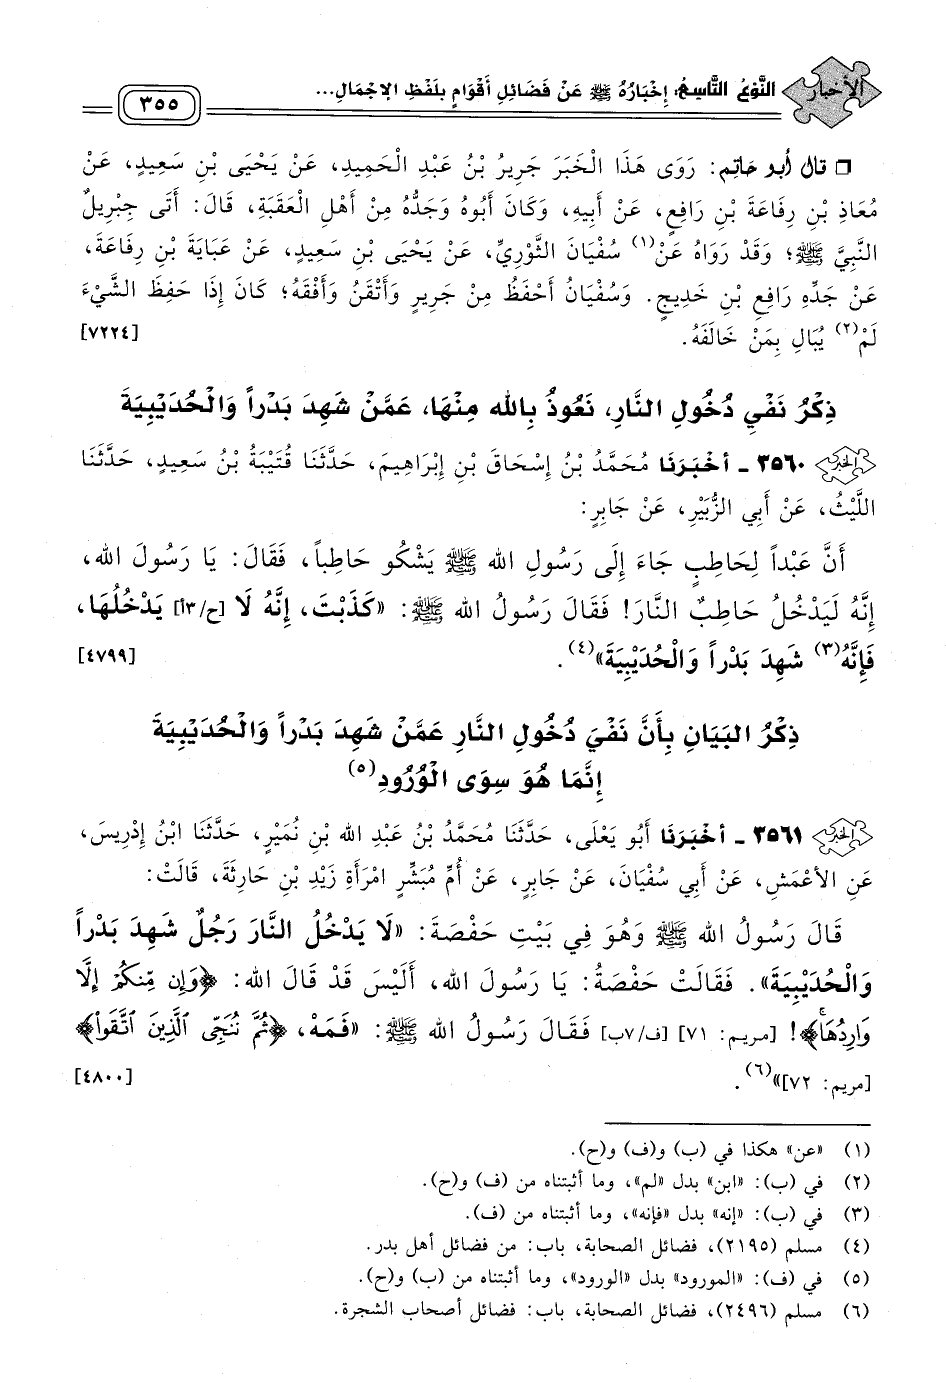 الأخبار النَّوْعُ التَّاسِعُ: إِخْبَارُهُ ﷺ عَنْ فَضَائِلِ أَقْوَامٍ بِلَفْظِ الإِجْمَالِ...
٣٥٥
❒ قال أبو حاتِم: رَوَى هَذَا الْخَبَرَ جَرِيرُ بْنُ عَبْدِ الْحَمِيدِ، عَنْ يَحْيَى بْنِ سَعِيدٍ، عَنْ
مُعَاذِ بْنِ رِفَاعَةَ بْنِ رَافِعٍ، عَنْ أَبِيهِ، وَكَانَ أَبُوهُ وَجَدُّهُ مِنْ أَهْلِ الْعَقَبَةِ، قَالَ: أَتَى جِبْرِيلُ
النَّبِيَّ ﷺ؛ وَقَدْ رَوَاهُ عَنْ(١) سُفْيَانَ الثَّوْرِيِّ، عَنْ يَحْيَى بْنِ سَعِيدٍ، عَنْ عَبَايَةَ بْنِ رِفَاعَةَ،
عَنْ جَدِّهِ رَافِعِ بْنِ خَدِيجٍ. وَسُفْيَانُ أَحْفَظُ مِنْ جَرِيرٍ وَأَتْقَنُ وَأَفْقَهُ؛ كَانَ إِذَا حَفِظَ الشَّيْءَ
لَمْ(٢) يُبَالِ بِمَنْ خَالَفَهُ. [٧٢٢٤]
ذِكْرُ نَفْيِ دُخُولِ النَّارِ، نَعُوذُ بِالله مِنْهَا، عَمَّنْ شَهِدَ بَدْراً وَالْحُدَيْبِيَةَ
الخبر ٣٥٦٠ ـ أَخْبَرَنَا مُحَمَّدُ بْنُ إِسْحَاقَ بْنِ إِبْرَاهِيمَ، حَدَّثَنَا قُتَيْبَةُ بْنُ سَعِيدٍ، حَدَّثَنَا
اللَّيْثُ، عَنْ أَبِي الزُّبَيْرِ، عَنْ جَابِرٍ:
أَنَّ عَبْداً لِحَاطِبٍ جَاءَ إِلَى رَسُولِ الله ﷺ يَشْكُو حَاطِباً، فَقَالَ: يَا رَسُولَ الله،
إِنَّهُ لَيَدْخُلُ حَاطِبٌ النَّارَ! فَقَالَ رَسُولُ الله ﷺ: «كَذَبْتَ، إِنَّهُ لَا [ح/٣أ] يَدْخُلُهَا،
فَإِنَّهُ(٣) شَهِدَ بَدْراً وَالْحُدَيْبِيَةَ»(٤). [٤٧٩٩]
ذِكْرُ البَيَانِ بِأَنَّ نَفْيَ دُخُولِ النَّارِ عَمَّنْ شَهِدَ بَدْراً وَالْحُدَيْبِيَةَ
إِنَّمَا هُوَ سِوَى الْوُرُودِ(٥)
الخبر ٣٥٦١ ـ أَخْبَرَنَا أَبُو يَعْلَى، حَدَّثَنَا مُحَمَّدُ بْنُ عَبْدِ الله بْنِ نُمَيْرٍ، حَدَّثَنَا ابْنُ إِدْرِيسَ،
عَنِ الأَعْمَشِ، عَنْ أَبِي سُفْيَانَ، عَنْ جَابِرٍ، عَنْ أُمِّ مُبَشِّرٍ امْرَأَةِ زَيْدِ بْنِ حَارِثَةَ، قَالَتْ:
قَالَ رَسُولُ الله ﷺ وَهُوَ فِي بَيْتِ حَفْصَةَ: «لَا يَدْخُلُ النَّارَ رَجُلٌ شَهِدَ بَدْراً
وَالْحُدَيْبِيَةَ». فَقَالَتْ حَفْصَةُ: يَا رَسُولَ الله، أَلَيْسَ قَدْ قَالَ الله: ﴿وَإِن مِّنكُمْ إِلَّا
وَارِدُهَا﴾! [مريم: ٧١] [ف/٧ب] فَقَالَ رَسُولُ الله ﷺ: «فَمَهْ، ﴿ثُمَّ نُنَجِّي الَّذِينَ اتَّقَوا﴾
[مريم: ٧٢]»(٦). [٤٨٠٠]
(١) «عن» هكذا في (ب) و(ف) و(ح).
(٢) في (ب): «ابن» بدل «لم»، وما أثبتناه من (ف) و(ح).
(٣) في (ب): «إنه» بدل «فإنه»، وما أثبتناه من (ف).
(٤) مسلم (٢١٩٥)، فضائل الصحابة، باب: من فضائل أهل بدر.
(٥) في (ف): «المورود» بدل «الورود»، وما أثبتناه من (ب) و(ح).
(٦) مسلم (٢٤٩٦)، فضائل الصحابة، باب: فضائل أصحاب الشجرة.